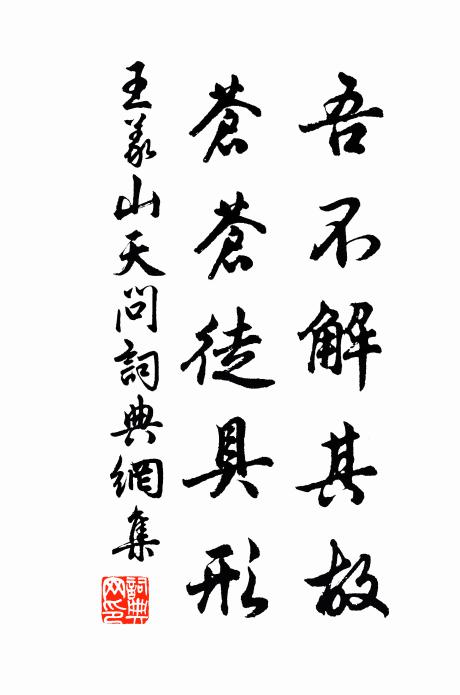 吾不解其故
蒼蒼徒具形
王義山天問詞典網集
詞典網印